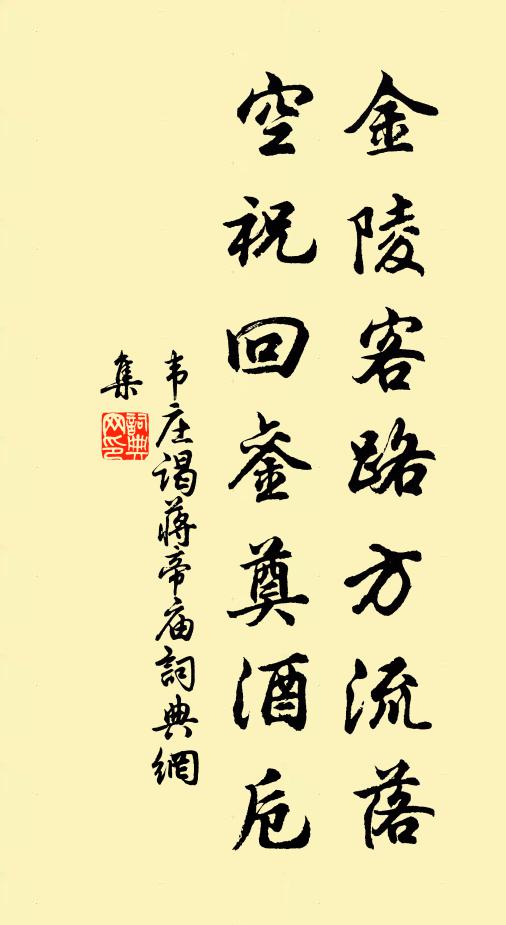 金陵客路方流落
空祝回銮奠酒卮
韦庄谒蒋帝庙詞典網
集
詞典
网印